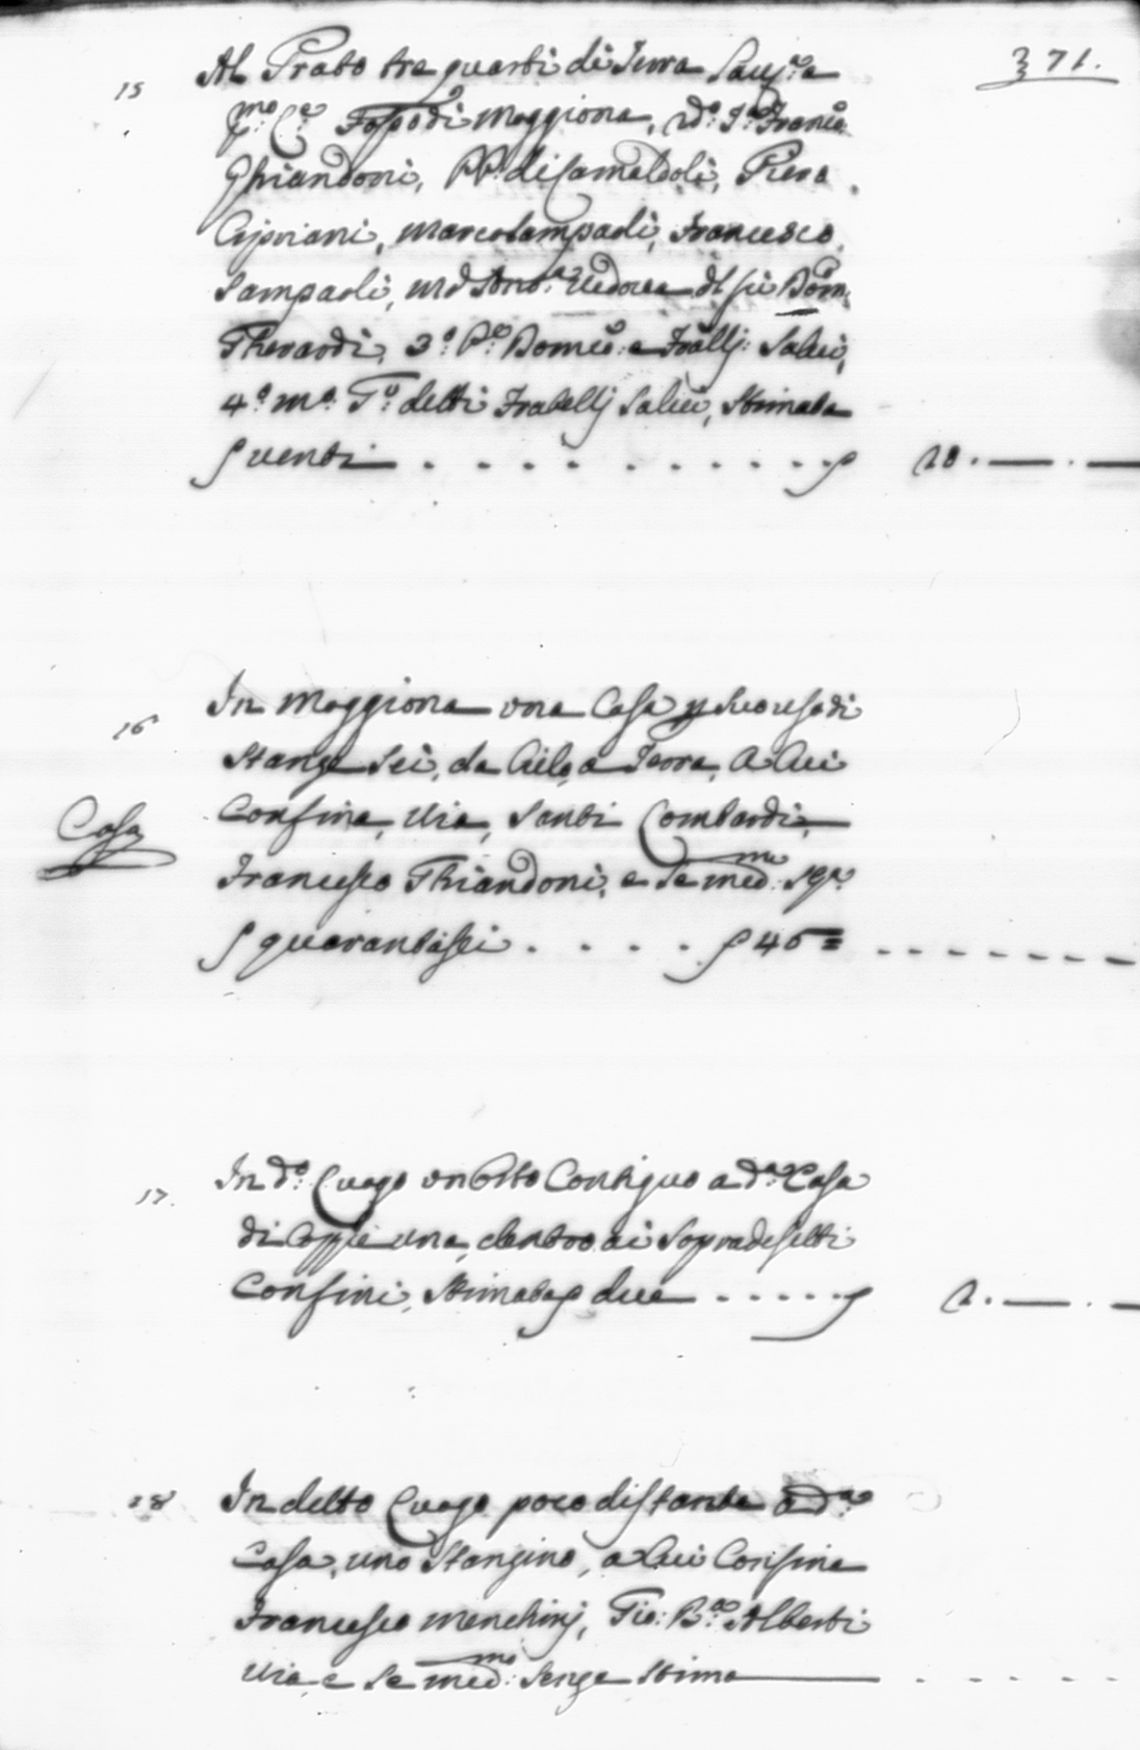 371.
15 Al Prato tre quarti di Terra Lau:ra
p.mo C.o Fosso di Moggiona, 2do: Franco:
Ghiandoni, PP. di Camaldoli, Piera
Cipriani, Marco Sampaoli, Francesco
Sampaoli, Vedova del fù Dom:
Gherardi, 3o: Po: Domco: e Fralli: Salvi,
4o: detti Fratellj Salvi, Stimata
∫ venti . . . . . . . . . . . ∫ 20. — . —
16 In Moggiona una Casa p suo uso di
Stanze Sei, da Cielo a Terra, a Cui
Casa
Confina, Via, Santi Lombardi,
Francesco Ghiandoni, e Se medmo: Sga:
∫ quarantasei . . . . . ∫ 46 = . . . . . . .
17. In do: Luogo un Orto Contiguo a da: Casa
di Coppie una, dentro ai Sopradescritti
Confini, Stimata ∫ due . . . . . ∫ 2. — . —
18 In detto Luogo poco distante a da:
Casa, uno Stanzino, a Cui Confina
Francesco Menchinj, Gio: Bao: Alberti
Via e Se medmo: Senza Stima — . . . . .